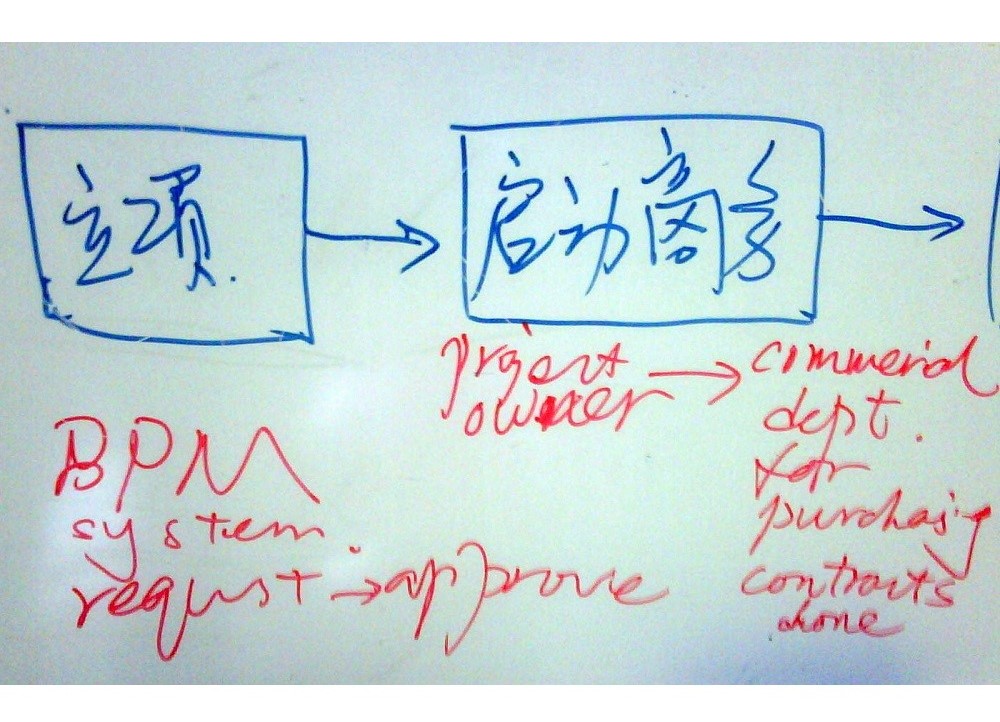 立项.
启动商务
project
owner → commercial
dept.
for
purchasing
contracts
done
BPM
system.
requst → approve